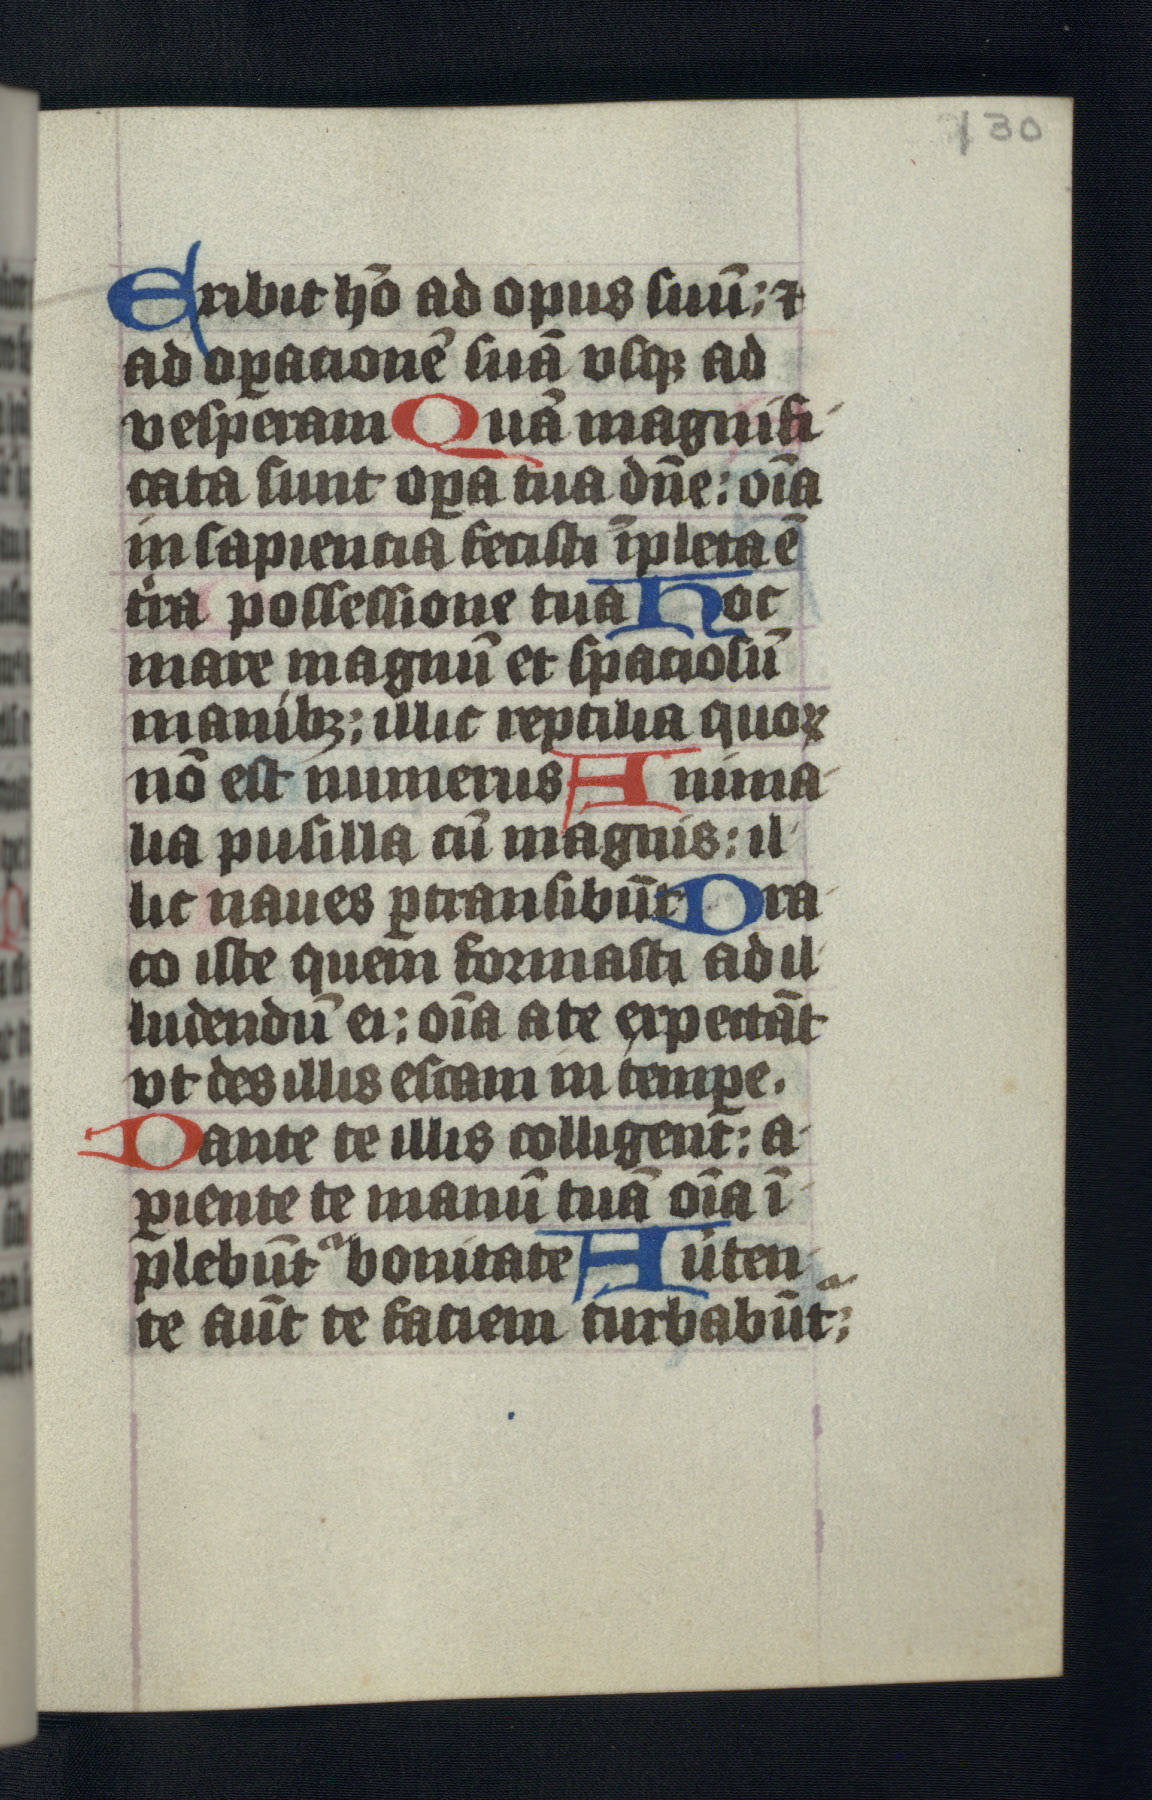 130
Exibit hō ad opus suū; ⁊
ad oꝑacionē suā vsqꝫ ad
vesperam Quā magnifi
cata sunt oꝑa tua dn̄e: oīa
in sapiencia fecisti īpleta ē
tr̄a possessione tua Hoc
mare magnū et spaciosū
manibꝫ; illic reptilia quoꝝ
nō est numerus Anima
lia pusilla cū magnis: il
lic naues ꝑtransibūt Dra
co iste quem formasti ad il
ludendū ei; oīa a te expectāt
vt des illis escam in tempe.
Dante te illis colligent̄: a
ꝑiente te manū tuā oīa ī
plebūt᷑ bonitate Auten
te aūt te faciem turbabūt᷑;